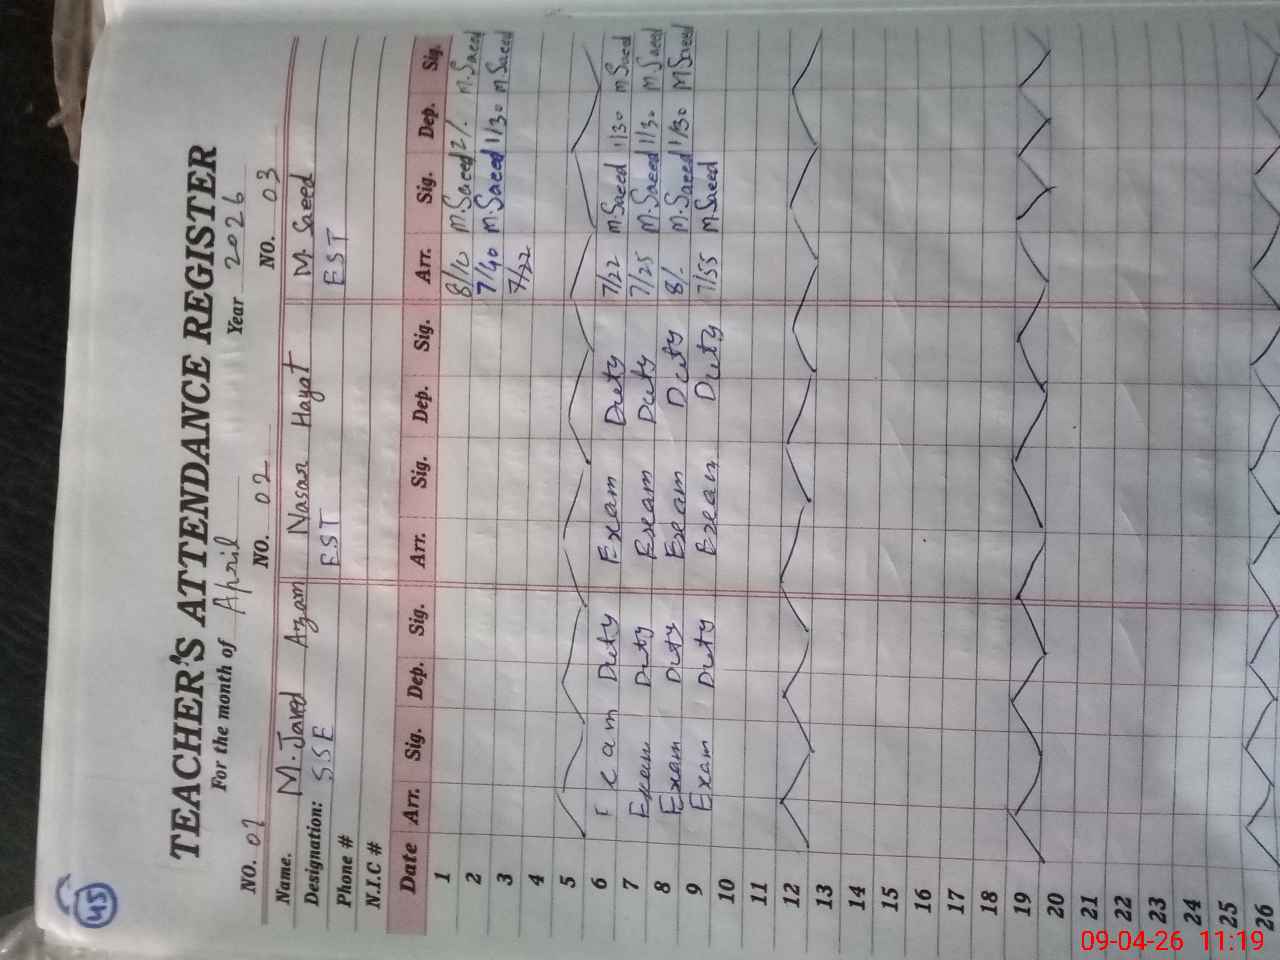 45
TEACHER'S ATTENDANCE REGISTER
For the month of April Year 2026
NO. 01 NO. 02 NO. 03
Name. M. Javed Azam Nasar Hayat M. Saeed
Designation: SSE EST EST
Phone #
N.I.C #
Date Arr. Sig. Dep. Sig. Arr. Sig. Dep. Sig. Arr. Sig. Dep. Sig.
1 8/10 M.Saeed 2/. M.Saeed
2 7/40 M.Saeed 1/30 M Saeed
3 7/22
4
5
6 Exam Duty Exam Duty 7/22 M Saeed 1/30 M Saeed
7 Exam Duty Exam Duty 7/25 M.Saeed 1/30 M Saeed
8 Exam Duty Exam Duty 8/- M.Saeed 1/30 M Saeed
9 Exam Duty Exam Duty 7/55 M Saeed
10
11
12
13
14
15
16
17
18
19
20
21
22
23
24
25
26
09-04-26 11:19